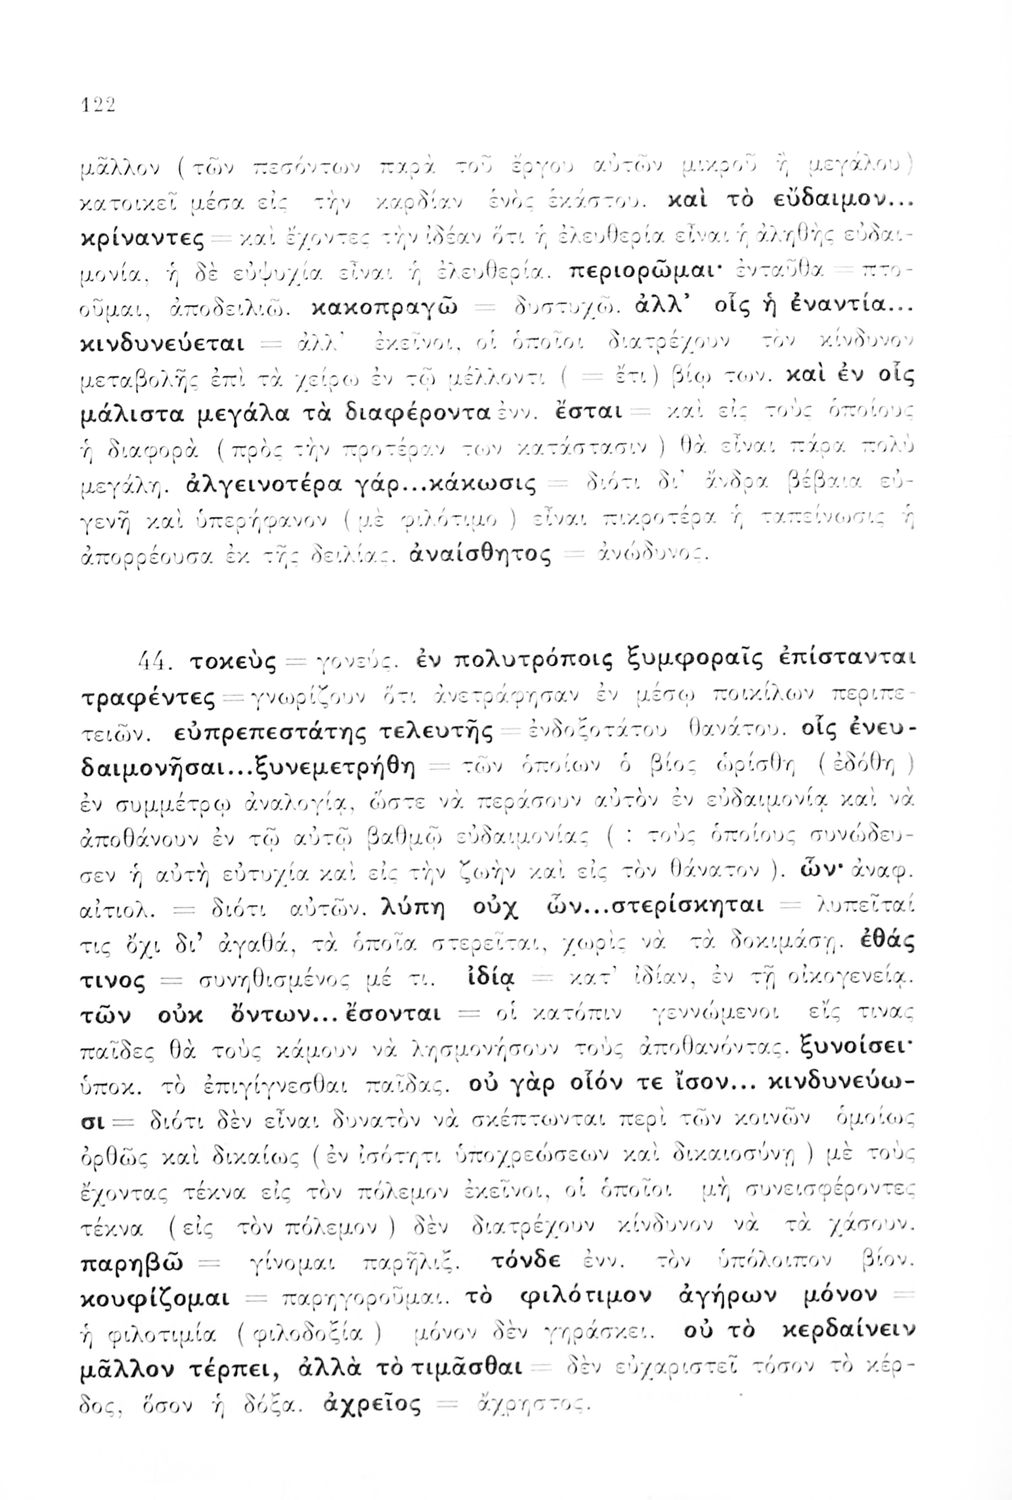 122
μᾶλλον ( τῶν πεσόντων παρὰ τοῦ ἔργου αὐτῶν μικροῦ ἢ μεγάλου )
κατοικεῖ μέσα εἰς τὴν καρδίαν ἑνὸς ἑκάστου. καὶ τὸ εὔδαιμον...
κρίναντες = καὶ ἔχοντες τὴν ἰδέαν ὅτι ἡ ἐλευθερία εἶναι ἡ ἀληθὴς εὐδαι-
μονία, ἡ δὲ εὐψυχία εἶναι ἡ ἐλευθερία. περιορῶμαι· ἐνταῦθα = πτο-
οῦμαι, ἀποδειλιῶ. κακοπραγῶ = δυστυχῶ. ἀλλ’ οἷς ἡ ἐναντία...
κινδυνεύεται = ἀλλ’ ἐκεῖνοι, οἱ ὁποῖοι διατρέχουν τὸν κίνδυνον
μεταβολῆς ἐπὶ τὰ χείρω ἐν τῷ μέλλοντι ( = ἔτι ) βίῳ των. καὶ ἐν οἷς
μάλιστα μεγάλα τὰ διαφέροντα ἐνν. ἔσται = καὶ εἰς τοὺς ὁποίους
ἡ διαφορὰ ( πρὸς τὴν προτέραν των κατάστασιν ) θὰ εἶναι πάρα πολὺ
μεγάλη. ἀλγεινοτέρα γάρ...κάκωσις = διότι δι’ ἄνδρα βέβαια εὐ-
γενῆ καὶ ὑπερήφανον ( μὲ φιλότιμο ) εἶναι πικροτέρα ἡ ταπείνωσις ἡ
ἀπορρέουσα ἐκ τῆς δειλίας. ἀναίσθητος = ἀνώδυνος.
44. τοκεὺς = γονεύς. ἐν πολυτρόποις ξυμφοραῖς ἐπίστανται
τραφέντες = γνωρίζουν ὅτι ἀνετράφησαν ἐν μέσῳ ποικίλων περιπε-
τειῶν. εὐπρεπεστάτης τελευτῆς = ἐνδοξοτάτου θανάτου. οἷς ἐνευ-
δαιμονῆσαι...ξυνεμετρήθη = τῶν ὁποίων ὁ βίος ὡρίσθη ( ἐδόθη )
ἐν συμμέτρῳ ἀναλογίᾳ, ὥστε νὰ περάσουν αὐτὸν ἐν εὐδαιμονίᾳ καὶ νὰ
ἀποθάνουν ἐν τῷ αὐτῷ βαθμῷ εὐδαιμονίας ( : τοὺς ὁποίους συνώδευ-
σεν ἡ αὐτὴ εὐτυχία καὶ εἰς τὴν ζωὴν καὶ εἰς τὸν θάνατον ). ὧν· ἀναφ.
αἰτιολ. = διότι αὐτῶν. λύπη οὐχ ὧν...στερίσκηται = λυπεῖταί
τις ὄχι δι’ ἀγαθά, τὰ ὁποῖα στερεῖται, χωρὶς νὰ τὰ δοκιμάσῃ. ἐθάς
τινος = συνηθισμένος μέ τι. ἰδίᾳ = κατ’ ἰδίαν, ἐν τῇ οἰκογενείᾳ.
τῶν οὐκ ὄντων... ἔσονται = οἱ κατόπιν γεννώμενοι εἴς τινας
παῖδες θὰ τοὺς κάμουν νὰ λησμονήσουν τοὺς ἀποθανόντας. ξυνοίσει·
ὑποκ. τὸ ἐπιγίγνεσθαι παῖδας. οὐ γὰρ οἷόν τε ἴσον... κινδυνεύω-
σι = διότι δὲν εἶναι δυνατὸν νὰ σκέπτωνται περὶ τῶν κοινῶν ὁμοίως
ὀρθῶς καὶ δικαίως ( ἐν ἰσότητι ὑποχρεώσεων καὶ δικαιοσύνῃ ) μὲ τοὺς
ἔχοντας τέκνα εἰς τὸν πόλεμον ἐκεῖνοι, οἱ ὁποῖοι μὴ συνεισφέροντες
τέκνα ( εἰς τὸν πόλεμον ) δὲν διατρέχουν κίνδυνον νὰ τὰ χάσουν.
παρηβῶ = γίνομαι παρῆλιξ. τόνδε ἐνν. τὸν ὑπόλοιπον βίον.
κουφίζομαι = παρηγοροῦμαι. τὸ φιλότιμον ἀγήρων μόνον =
ἡ φιλοτιμία ( φιλοδοξία ) μόνον δὲν γηράσκει. οὐ τὸ κερδαίνειν
μᾶλλον τέρπει, ἀλλὰ τὸ τιμᾶσθαι = δὲν εὐχαριστεῖ τόσον τὸ κέρ-
δος, ὅσον ἡ δόξα. ἀχρεῖος = ἄχρηστος.